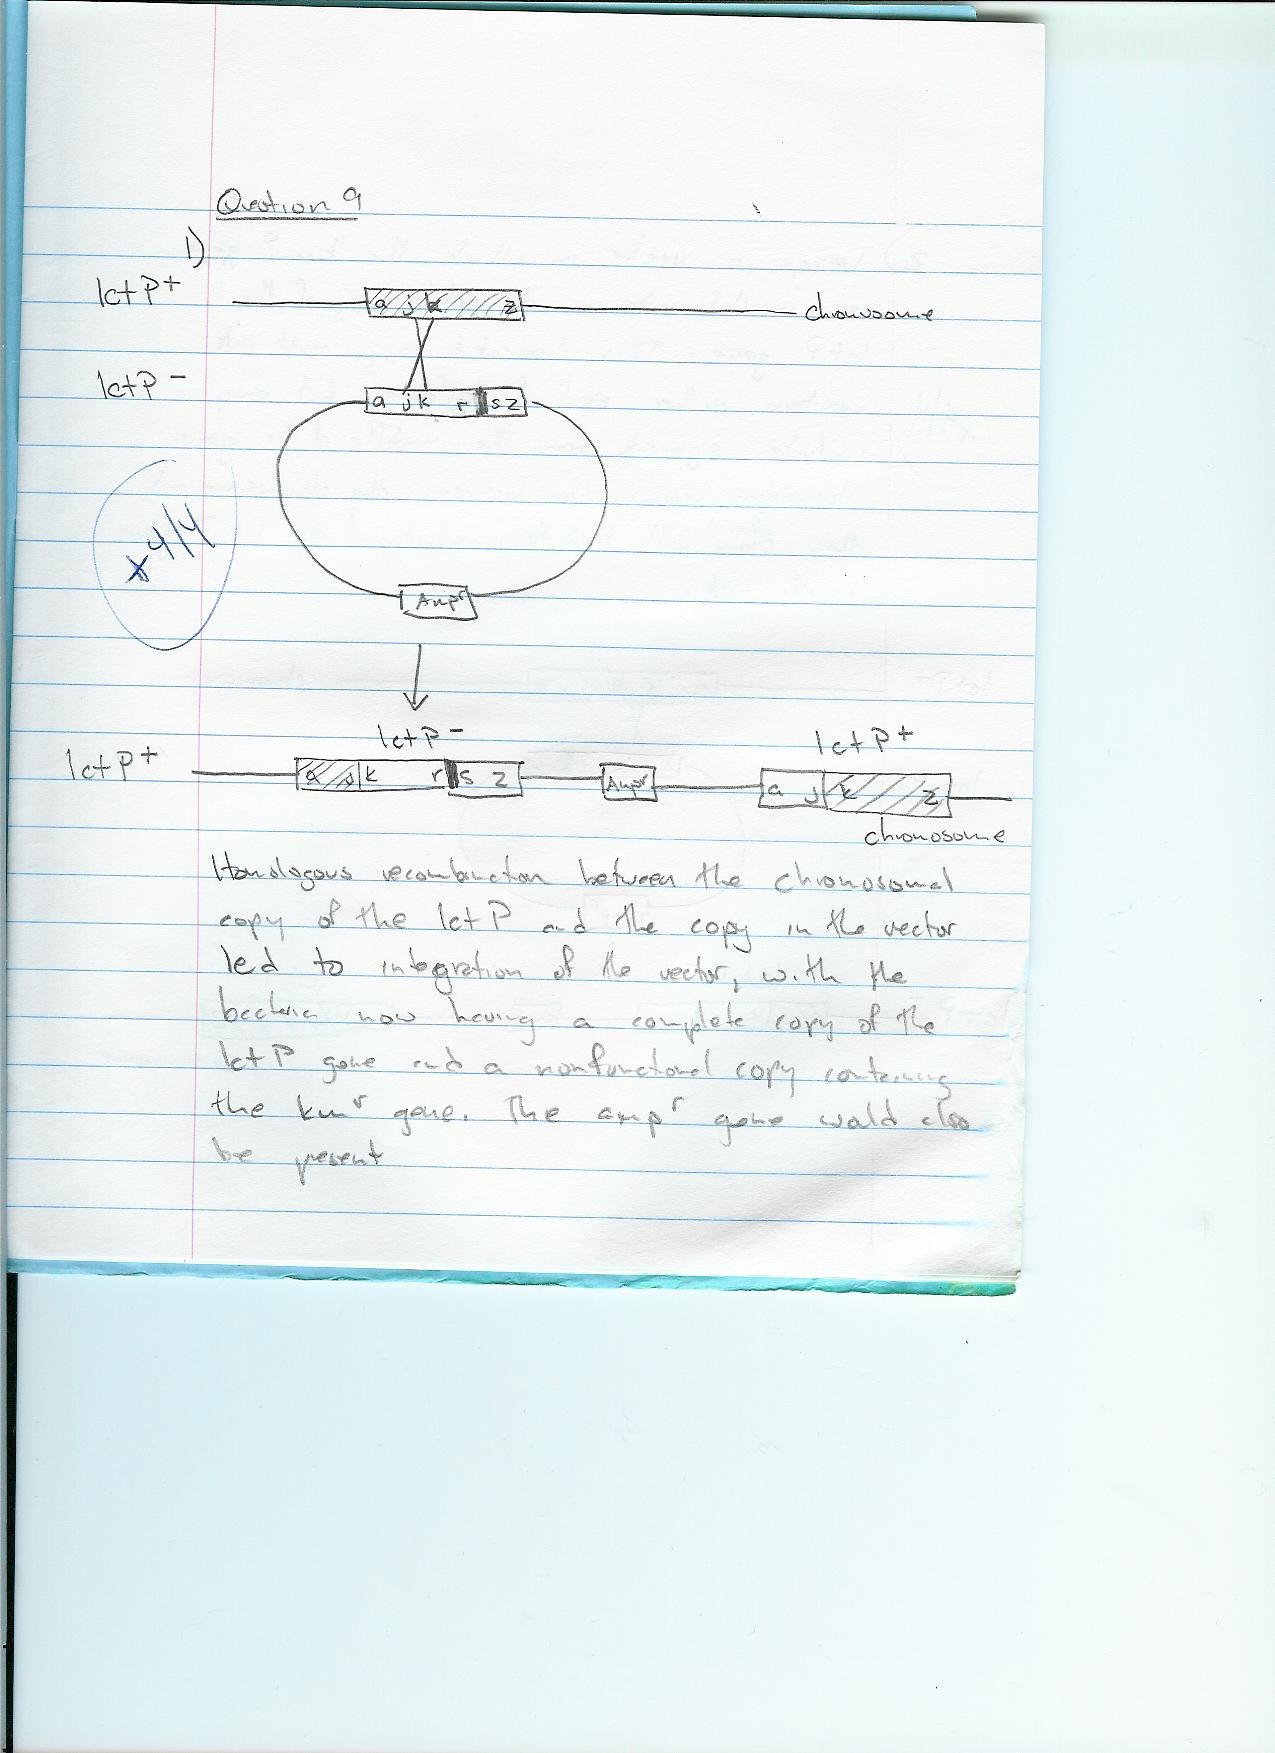 Question 9
1)
lctP+
a j k z
chromosome
lctP-
a j k r s z
x 4/4
Ampr
lctP-
lctP+
lctP+
a j k r s z
Ampr
a j k z
chromosome
Homologous recombination between the chromosomal
copy of the lctP and the copy in the vector
led to integration of the vector, with the
bacteria now having a complete copy of the
lctP gene and a nonfunctional copy containing
the kmr gene. The ampr gene would also
be present